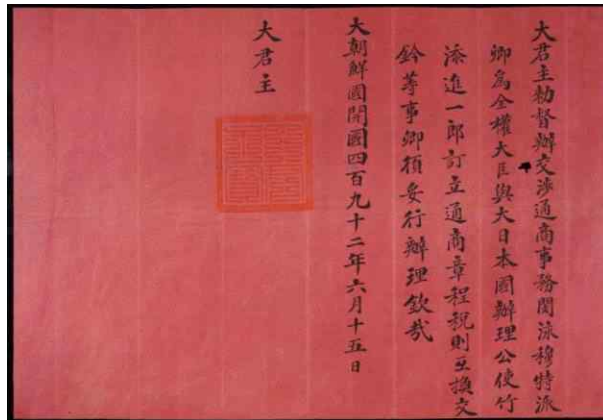 大君主勅督辦交涉通商事務閔泳穆特派
卿爲全權大臣與大日本國辦理公使竹
添進一郎訂立通商章程稅則互換交
鈐等事卿須妥行辦理欽哉
大朝鮮國開國四百九十二年六月十五日
大君主